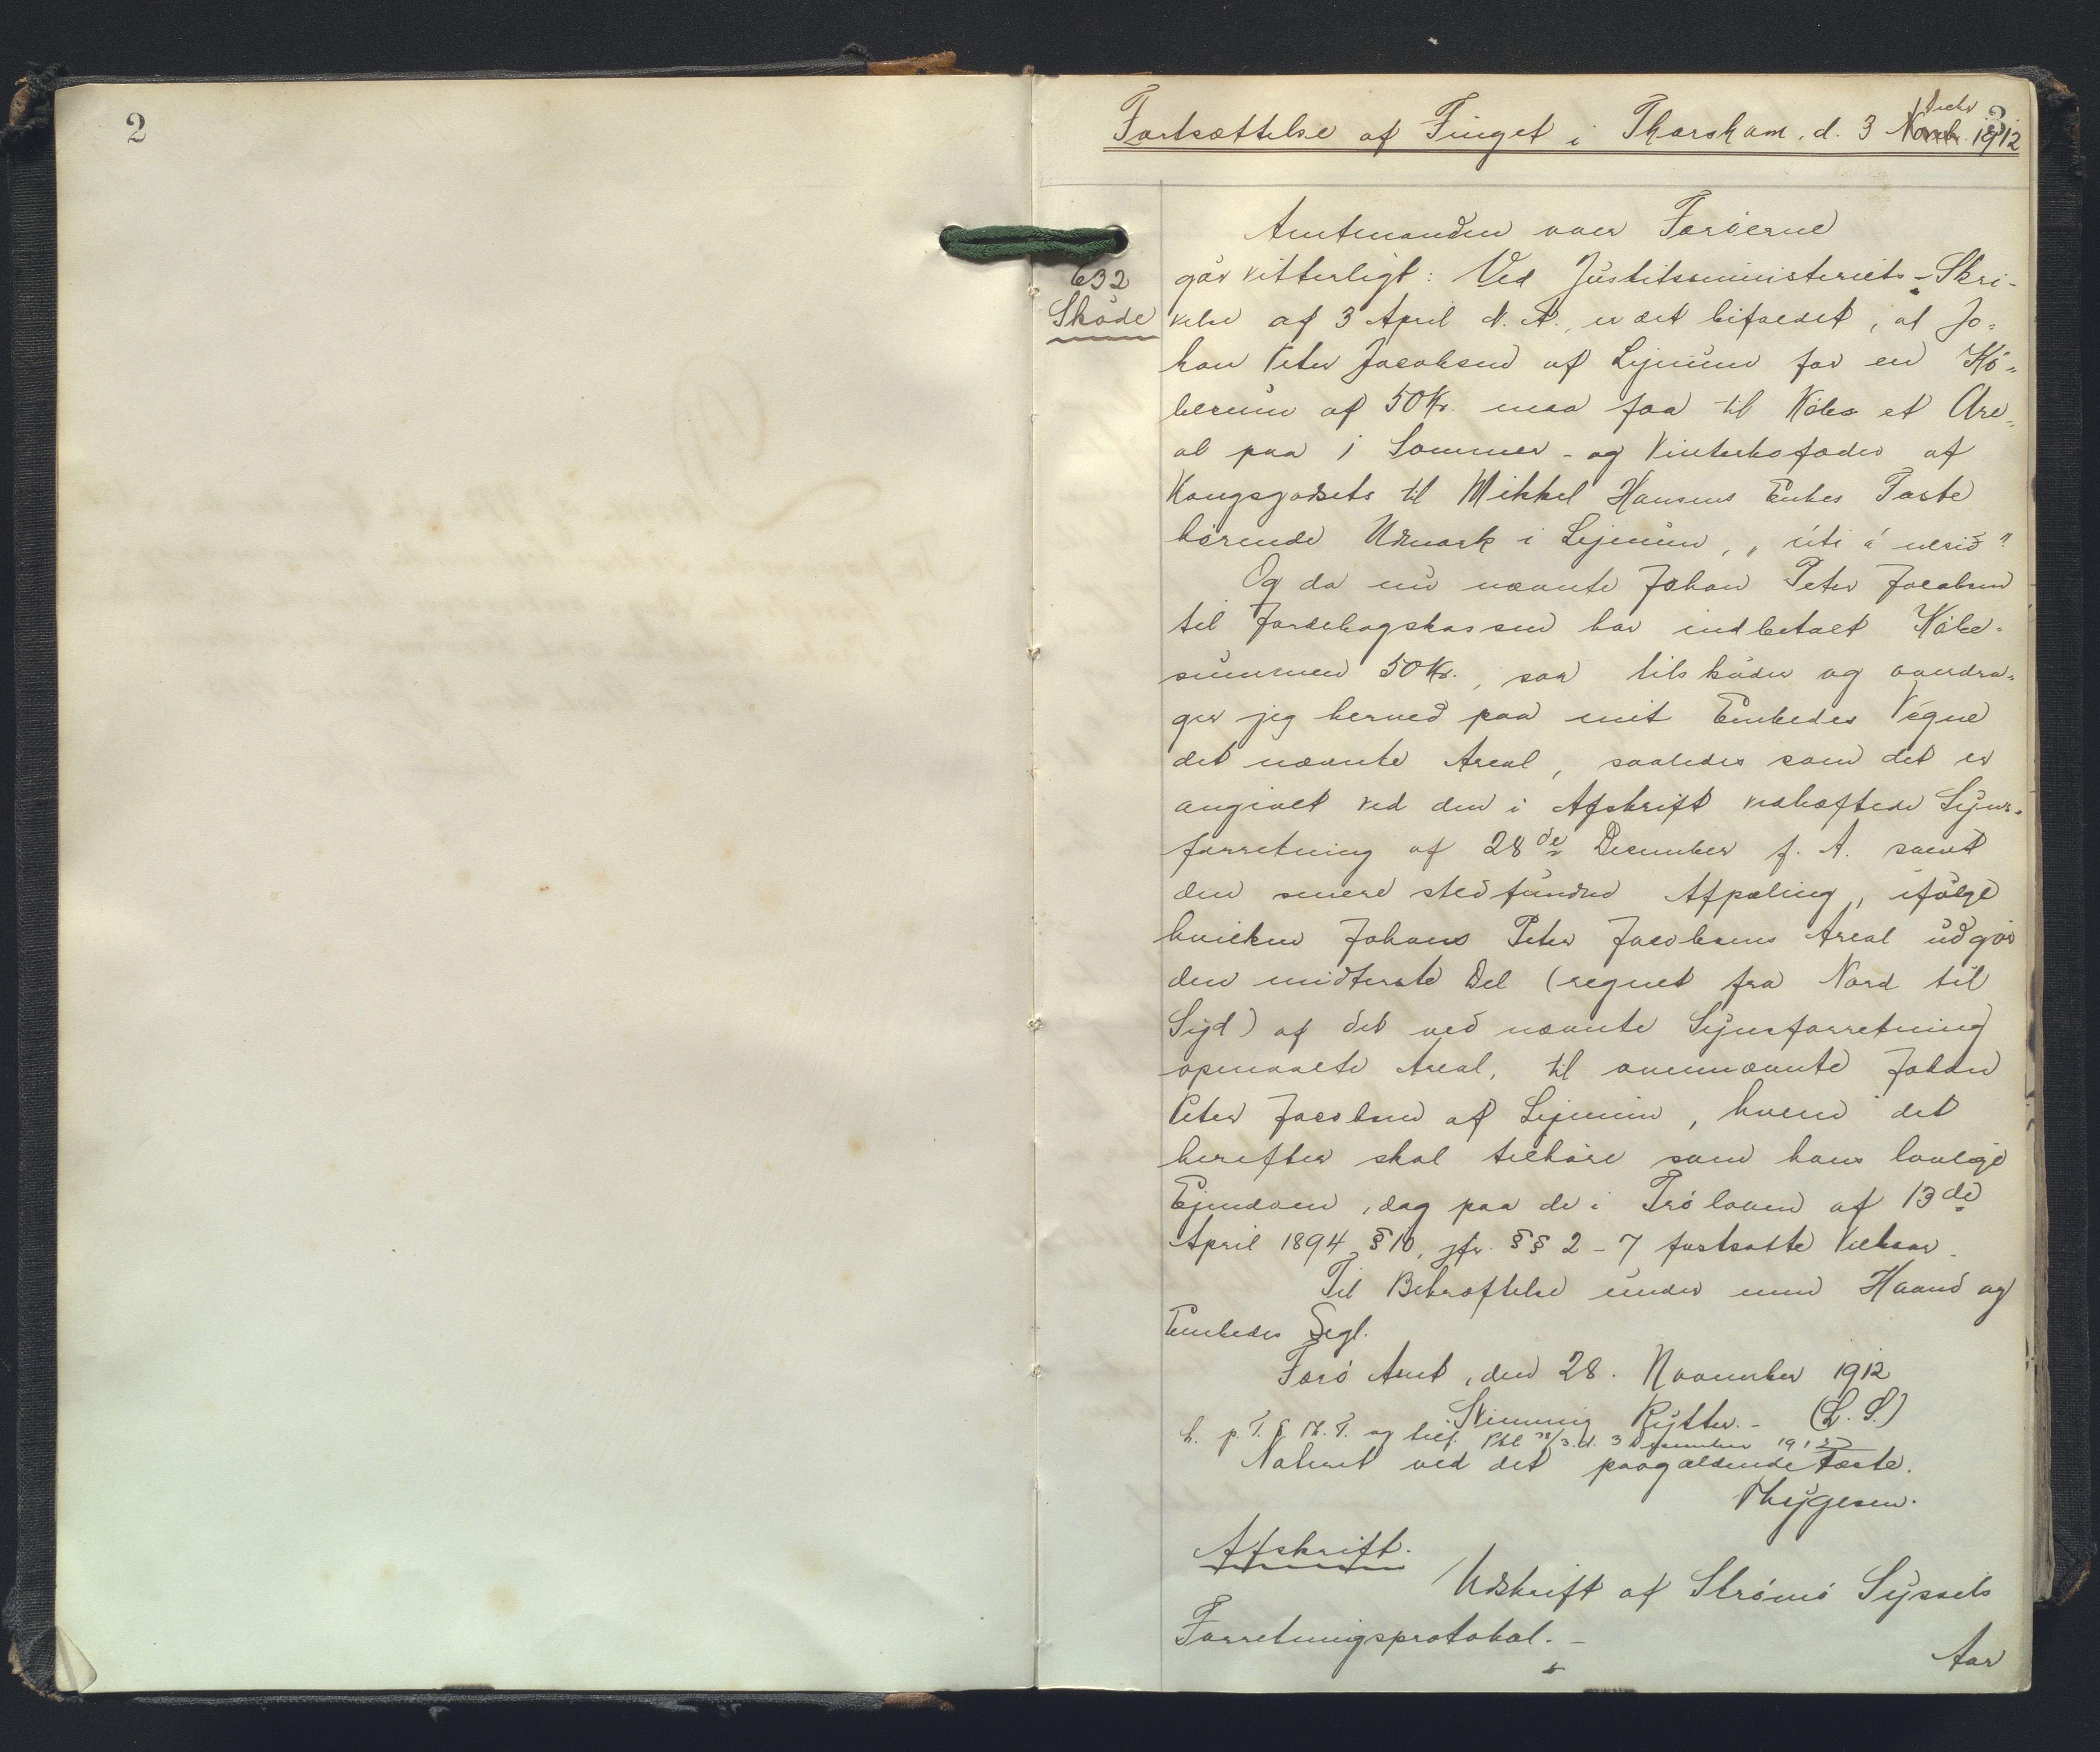 2
3
Fortsættelse af Tinget i Thorshavn, d. 3 Novb. Decbr 1912
Amtmanden over Færøerne
632
Skøde
gør vitterligt: Ved Justitsministeriets Skri-
velse af 3 April d. A., er det bifaldet, at Jo-
han Peter Jacobsen af Lejnum for en Kø-
besum af 50 Kr. maa faa til Købs et Are-
al paa 1 Sommer- og Vinterkofoder af
Kongsgodsets til Mikkel Hansens Enkes Fæste
hørende Udmark i Lejnum, „úti á
Og da nu nævnte Johan Peter Jacobsen
til Jordebogskassen har indbetalt Købe-
summen 50 Kr., saa tilskøder og overdra-
ger jeg herved paa mit Embedes Vegne
det nævnte Areal, saaledes som det er
angivet ved den i Afskrift vedhæftede Syns-
forretning af 28de December f. A. samt
den senere stedfundne Afpæling, ifølge
hvilken Johans Peter Jacobsens Areal udgør
den midterste Del (regnet fra Nord til
Syd) af det ved nævnte Synsforretning
opmaalte Areal, til ovennævnte Johan
Peter Jacobsen af Lejnum, hvem det
herefter skal tilhøre som hans lovlige
Ejendom, dog paa de i Frø loven af 13de
April 1894 § 10, jfr. §§ 2-7 fastsatte Vilkaar.
Til Bekræftelse under min Haand og
Embedes Segl.
Færø Amt, den 28. November 1912
Rytter. - (L. S.)
h. p. T. f. og 3 December 1912
Noteret ved det paagældende Fæste.
Thygesen.
Afskrift.
Udskrift af Strømø Syssels
Forretningsprotokol. -
Aar